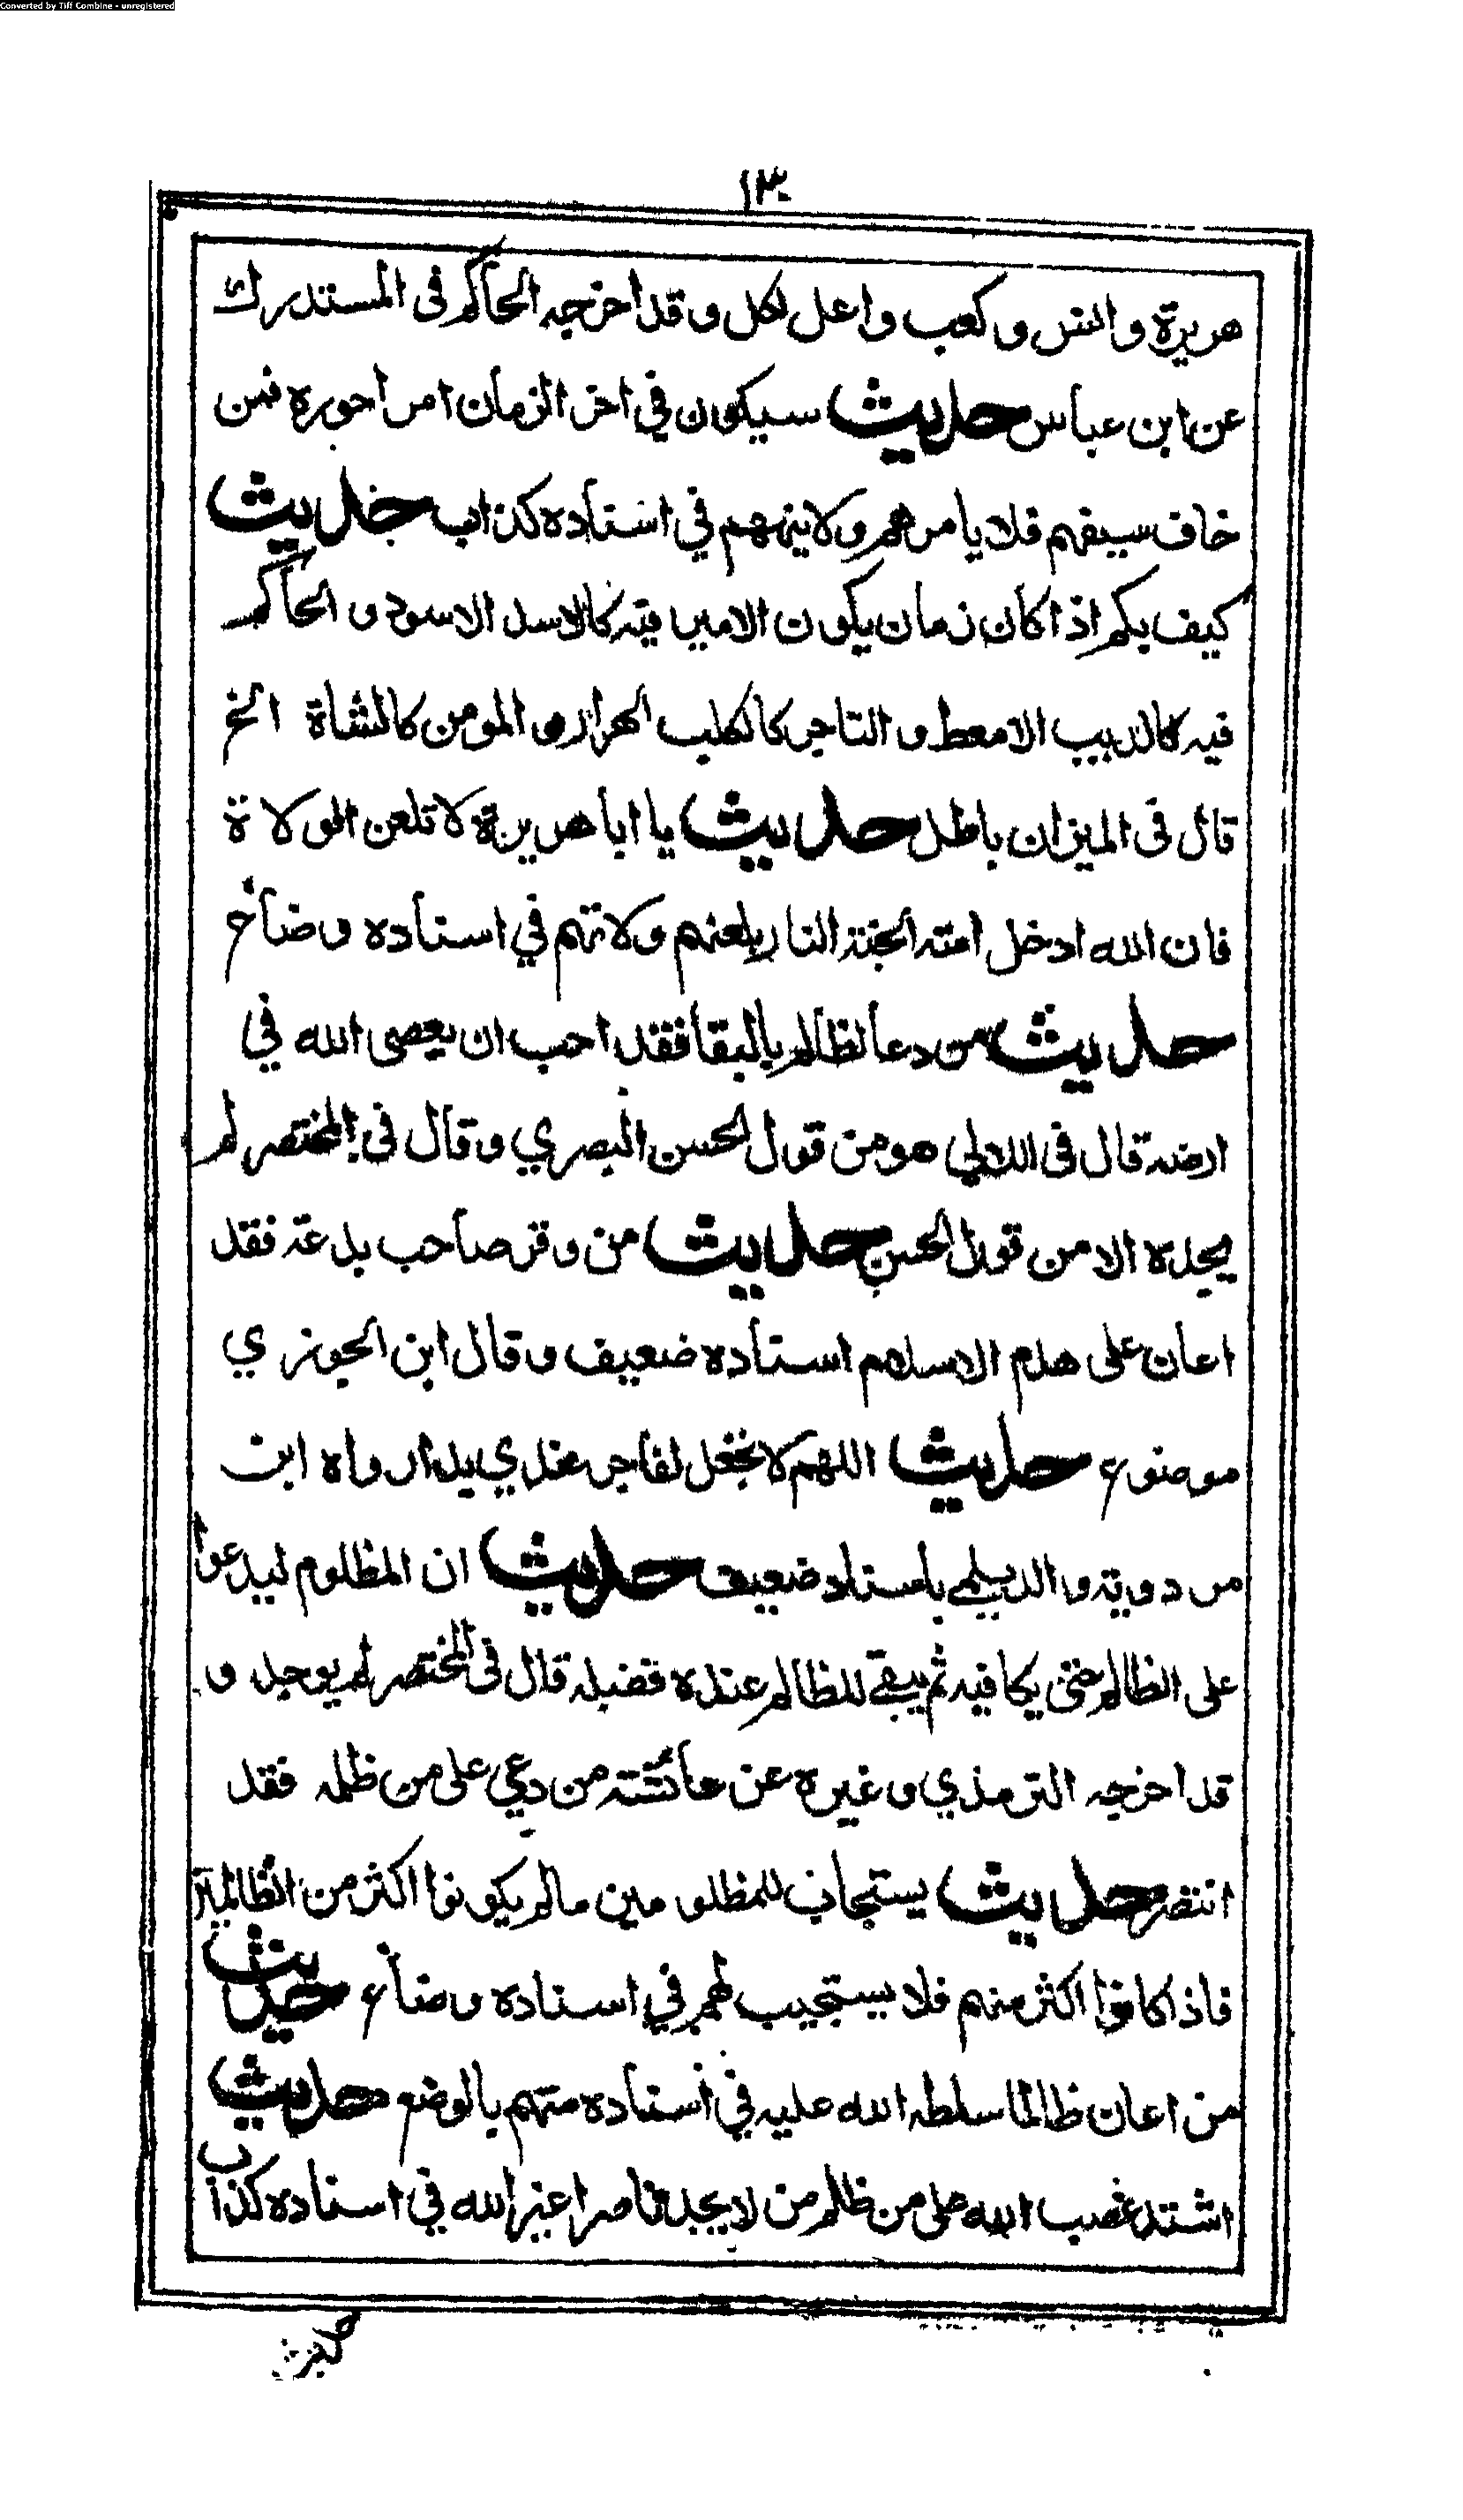 Converted by Tiff Combine - unregistered
١٣٠
هريرة وانس وكعب واعل لكل وقد اخرجه الحاكم فى المستدرك
عن ابن عباس حديث سيكون في اخر الزمان امراجوره فمن
خاف سيفهم فلا يامرهم ولا ينههم في اسناده كذاب حديث
كيف بكم اذا كان زمان يكون الامير فيه كالاسد الاسود و الحاكم
فيه كالديب الامعط و التاجر كالكلب الهرار و المومن كالشاة الخ
قال فى الميزان باطل حديث يا ابا هريرة لا تلعن الولاة
فان الله ادخل امته الجنة النار بلعنهم ولاتهم في اسناده وضاع
حديث من دعا لظالم بالبقا فقد احب ان يعصى الله في
ارضه قال فى اللالي هو من قول الحسن البصري وقال فى المختصر لم
يجده الا من قول الحسن حديث من وقر صاحب بدعة فقد
اعان على هدم الاسلام اسناده ضعيف وقال ابن الجوزي
موضوع حديث اللهم لا تجعل لفاجر عندي يدا رواه ابن
مردويه والديلمي باسناد ضعيف حديث ان المظلوم ليدعوا
على الظالم حتى يكافيه ثم يبقي للظالم عنده فضيله قال فى المختصر لم يوجد و
قد اخرجه الترمذي وغيره عن عائشة من دعي على من ظلمه فقد
انتصر حديث يستجاب للمظلومين مالم يكونوا اكثر من الظالمين
فاذا كانوا اكثر منهم فلا يستجيب لهم في اسناده وضاع حديث
من اعان ظالما سلطه الله عليه في اسناده متهم بالوضع حديث
اشتد غضب الله على من ظلم من لا يجد ناصرا غير الله في اسناده كذاب